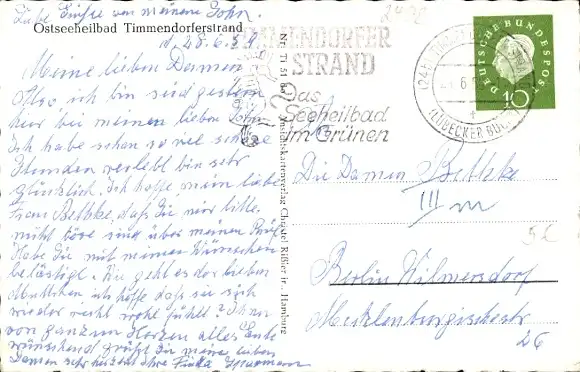 Liebe Grüße von meinem Sohn.
Ostseeheilbad Timmendorferstrand
d. 28.6.59
Meine lieben Damen
Also, ich bin seit gestern
hier bei meinen lieben Sohn
Ich habe schon so viel schöne
Stunden verlebt bin sehr
glücklich. Ich hoffe, meine liebe
Frau Bethke, daß Sie mir bitte
nicht böse sind über meinen
Habe Sie mit meinen Wünschen
belästigt. Wie geht es der lieben
Muttchen ich hoffe daß sie sich
wieder recht wohl fühlt? Ihnen
von ganzem Herzen alles Gute
wünschend grüßt Sie meine lieben
Damen sehr herzlichst Ihre
Nr. Ti 51
Ansichtskartenverlag Christel Rißler jr., Hamburg
TIMMENDORFER
STRAND
Das
Seeheilbad
im Grünen
(24b) TIMMENDORFER STRAND
(LÜBECKER BUCHT)
DEUTSCHE BUNDESPOST
10
Die Damen Bethke
III m
5 €
Berlin Wilmersdorf
Mecklenburgischestr
26